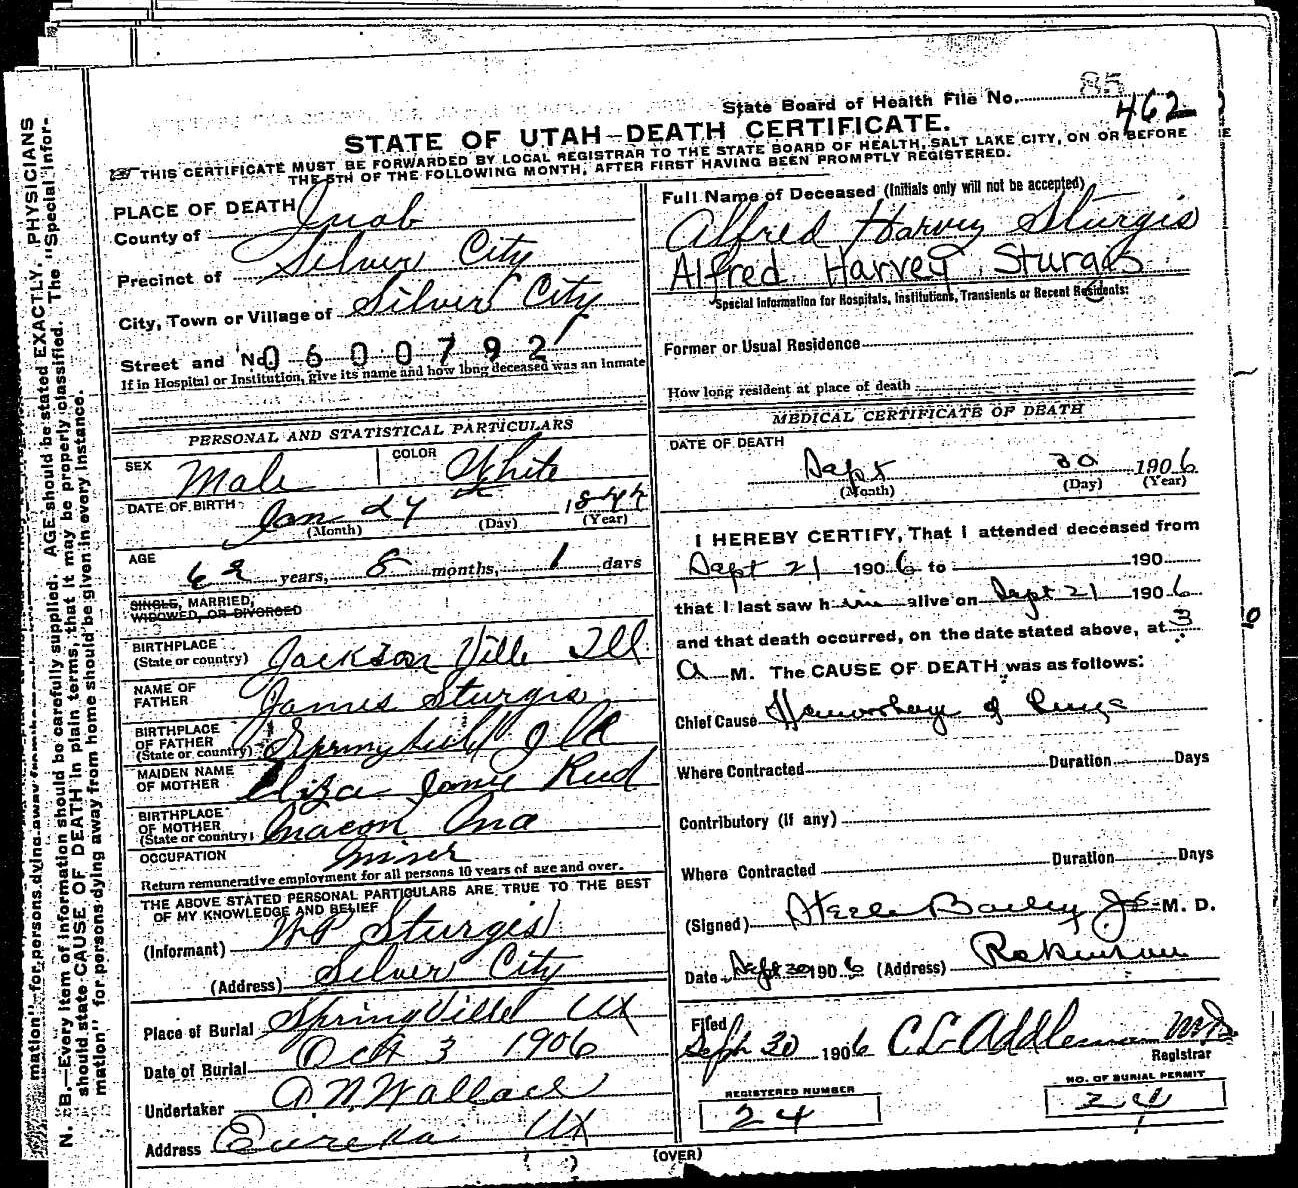 State Board of Health File No. 85
462
STATE OF UTAH—DEATH CERTIFICATE.
THIS CERTIFICATE MUST BE FORWARDED BY LOCAL REGISTRAR TO THE STATE BOARD OF HEALTH, SALT LAKE CITY, ON OR BEFORE
THE 5TH OF THE FOLLOWING MONTH, AFTER FIRST HAVING BEEN PROMPTLY REGISTERED.
PLACE OF DEATH
County of Juab
Precinct of Silver City
City, Town or Village of Silver City
Street and No. 0600792
If in Hospital or Institution, give its name and how long deceased was an inmate
PERSONAL AND STATISTICAL PARTICULARS
SEX Male COLOR White
DATE OF BIRTH Jan 24 1844
(Month) (Day) (Year)
AGE 62 years, 8 months, 1 days
SINGLE, MARRIED,
WIDOWED, OR DIVORCED
BIRTHPLACE
(State or country) Jackson Ville Ill
NAME OF
FATHER James Sturgis
BIRTHPLACE
OF FATHER
(State or country)
MAIDEN NAME
OF MOTHER Eliza Jane Reed
BIRTHPLACE
OF MOTHER
(State or country) Macon
OCCUPATION Miner
Return remunerative employment for all persons 10 years of age and over.
THE ABOVE STATED PERSONAL PARTICULARS ARE TRUE TO THE BEST
OF MY KNOWLEDGE AND BELIEF
(Informant) W P Sturgis
(Address) Silver City
Place of Burial SpringVille Ut
Date of Burial Oct 3 1906
Undertaker D N Wallace
Address Eureka Ut
Full Name of Deceased (Initials only will not be accepted)
Alfred Harvey Sturgis
Alfred Harvey Sturgis
Special Information for Hospitals, Institutions, Transients or Recent Residents:
Former or Usual Residence
How long resident at place of death
MEDICAL CERTIFICATE OF DEATH
DATE OF DEATH
Sept 30 1906
(Month) (Day) (Year)
I HEREBY CERTIFY, That I attended deceased from
Sept 21 1906 to 190
that I last saw him alive on Sept 21 1906
and that death occurred, on the date stated above, at 3
A M. The CAUSE OF DEATH was as follows:
Chief Cause Hemorrhage of Lungs
Where Contracted Duration Days
Contributory (If any)
Where Contracted Duration Days
(Signed) Steele Bailey Jr M. D.
Date Sept 30 1906 (Address) Robinson
Filed
Sept 30 1906 C L Addleman MD
Registrar
REGISTERED NUMBER
24
NO. OF BURIAL PERMIT
24
(OVER)
N. B.—Every item of information should be carefully supplied. AGE should be stated EXACTLY. PHYSICIANS
should state CAUSE OF DEATH in plain terms, that it may be properly classified. The "Special Infor-
mation" for persons dying away from home should be given in every instance.